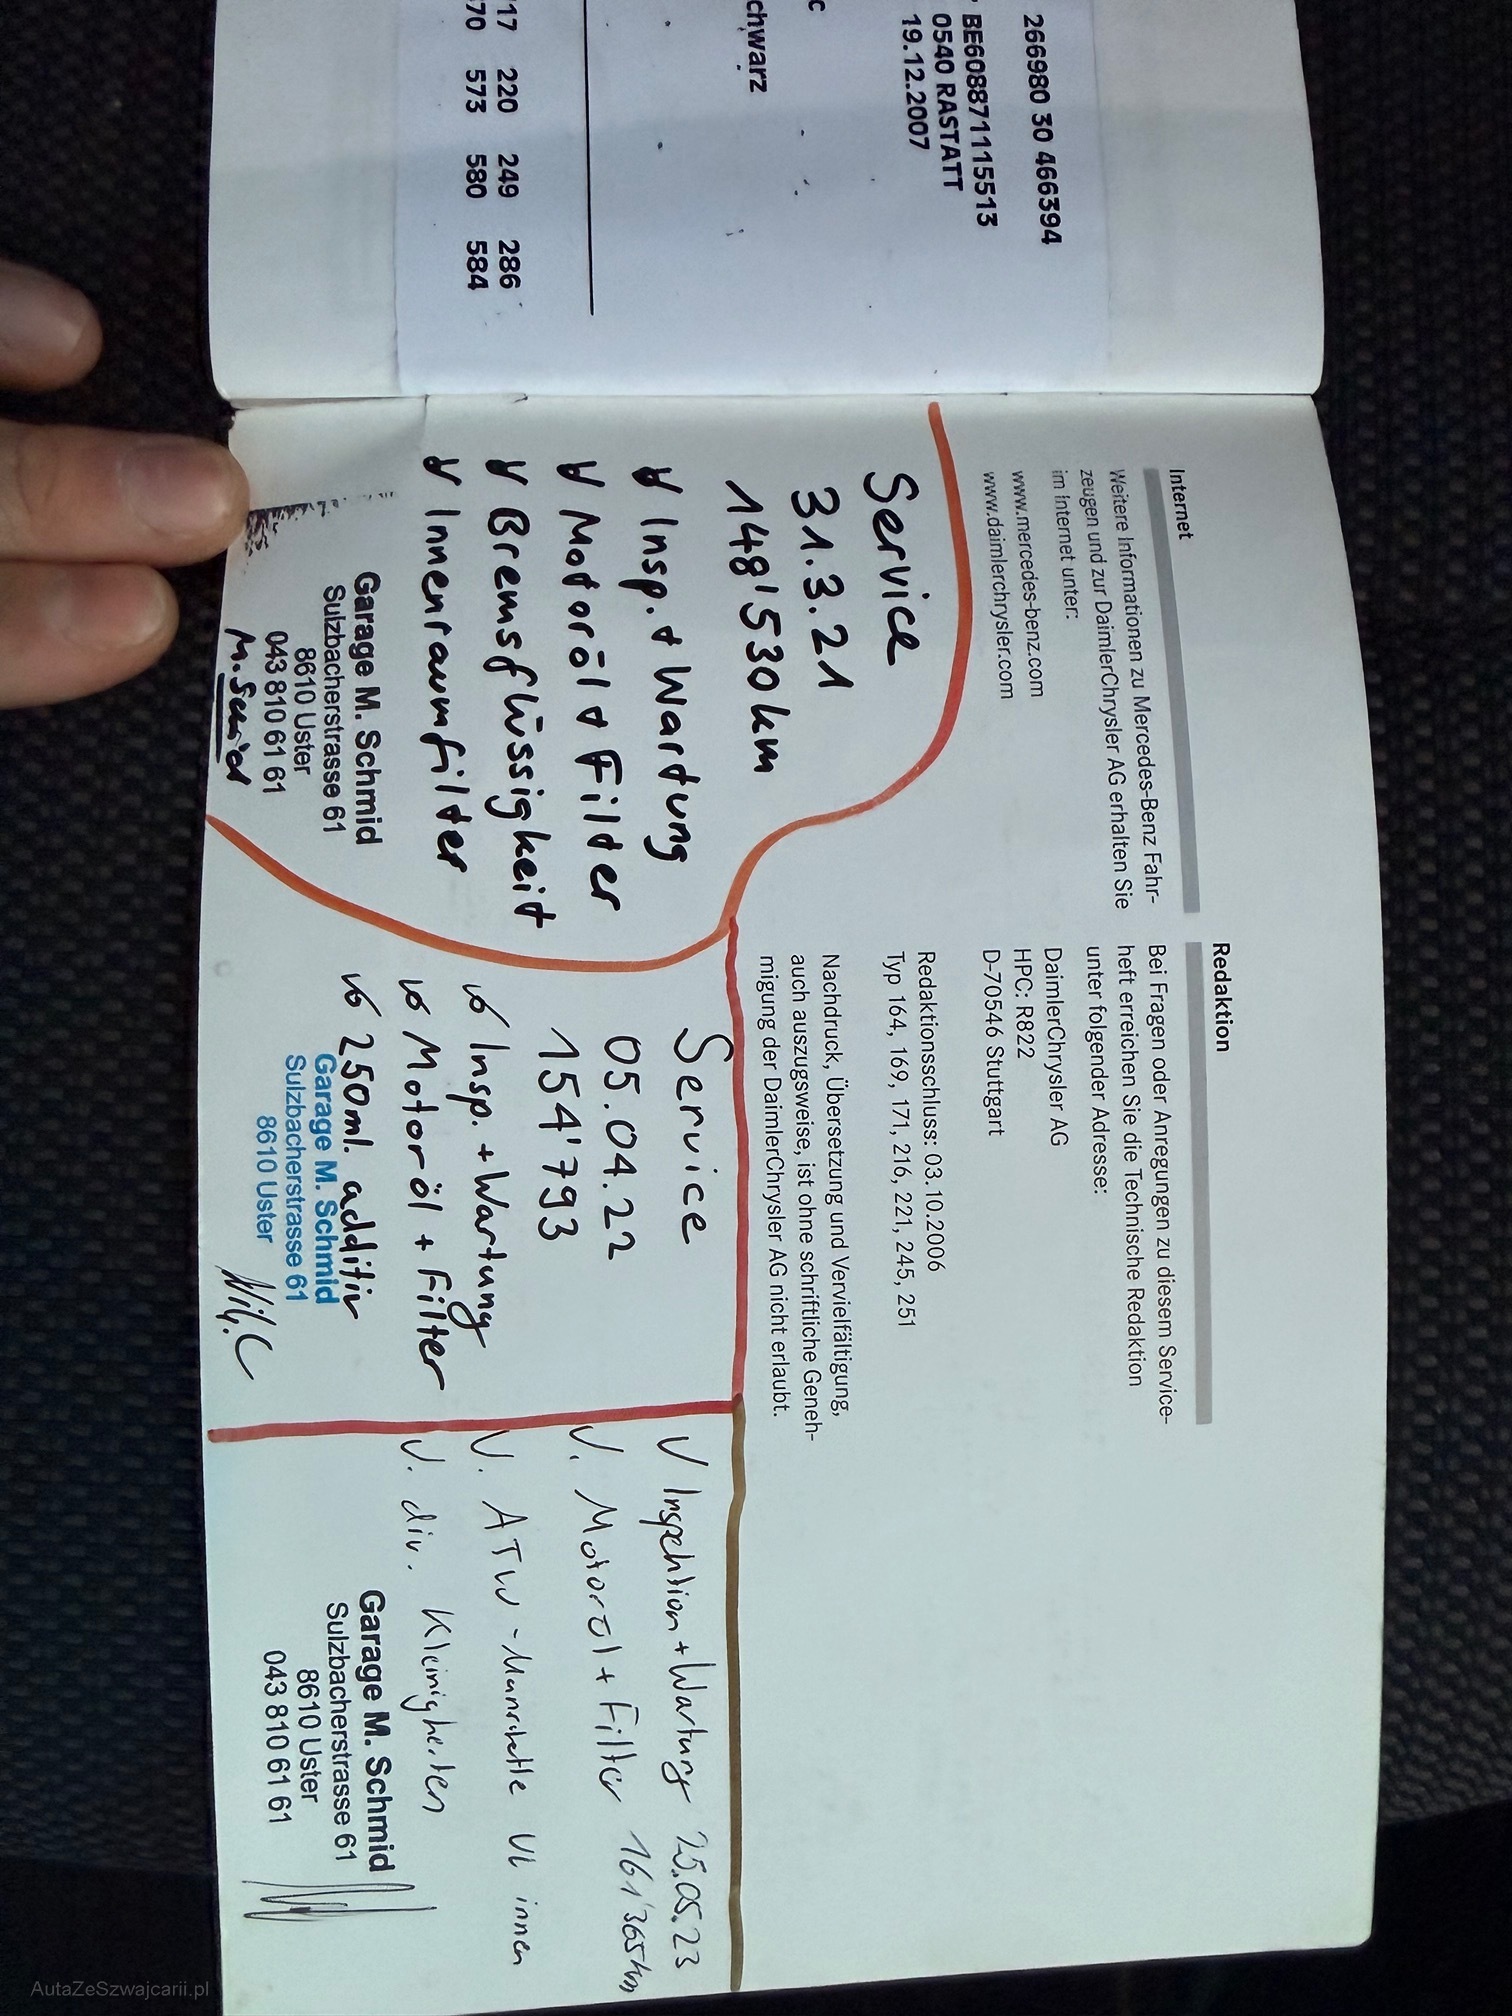 266980 30 466394
BE608871115513
0540 RASTATT
19.12.2007
c
chwarz
17 220 249 286
70 573 580 584
Internet
Weitere Informationen zu Mercedes-Benz Fahr-
zeugen und zur DaimlerChrysler AG erhalten Sie
im Internet unter:
www.mercedes-benz.com
www.daimlerchrysler.com
Redaktion
Bei Fragen oder Anregungen zu diesem Service-
heft erreichen Sie die Technische Redaktion
unter folgender Adresse:
DaimlerChrysler AG
HPC: R822
D-70546 Stuttgart
Redaktionsschluss: 03.10.2006
Typ 164, 169, 171, 216, 221, 245, 251
Nachdruck, Übersetzung und Vervielfältigung,
auch auszugsweise, ist ohne schriftliche Geneh-
migung der DaimlerChrysler AG nicht erlaubt.
Service
31.3.21
148'530km
Insp. + Wartung
Motoröl + Filter
Bremsflüssigkeit
Innenraumfilter
Garage M. Schmid
Sulzbacherstrasse 61
8610 Uster
043 810 61 61
M. Schmid
Service
05.04.22
154'793
Insp. + Wartung
Motoröl + Filter
250ml. additiv
Garage M. Schmid
Sulzbacherstrasse 61
8610 Uster
Inspektion + Wartung 25.05.23
Motoröl + Filter 161'365km
ATW - Manschette VL innen
div. Kleinigkeiten
Garage M. Schmid
Sulzbacherstrasse 61
8610 Uster
043 810 61 61
AutaZeSzwajcarii.pl